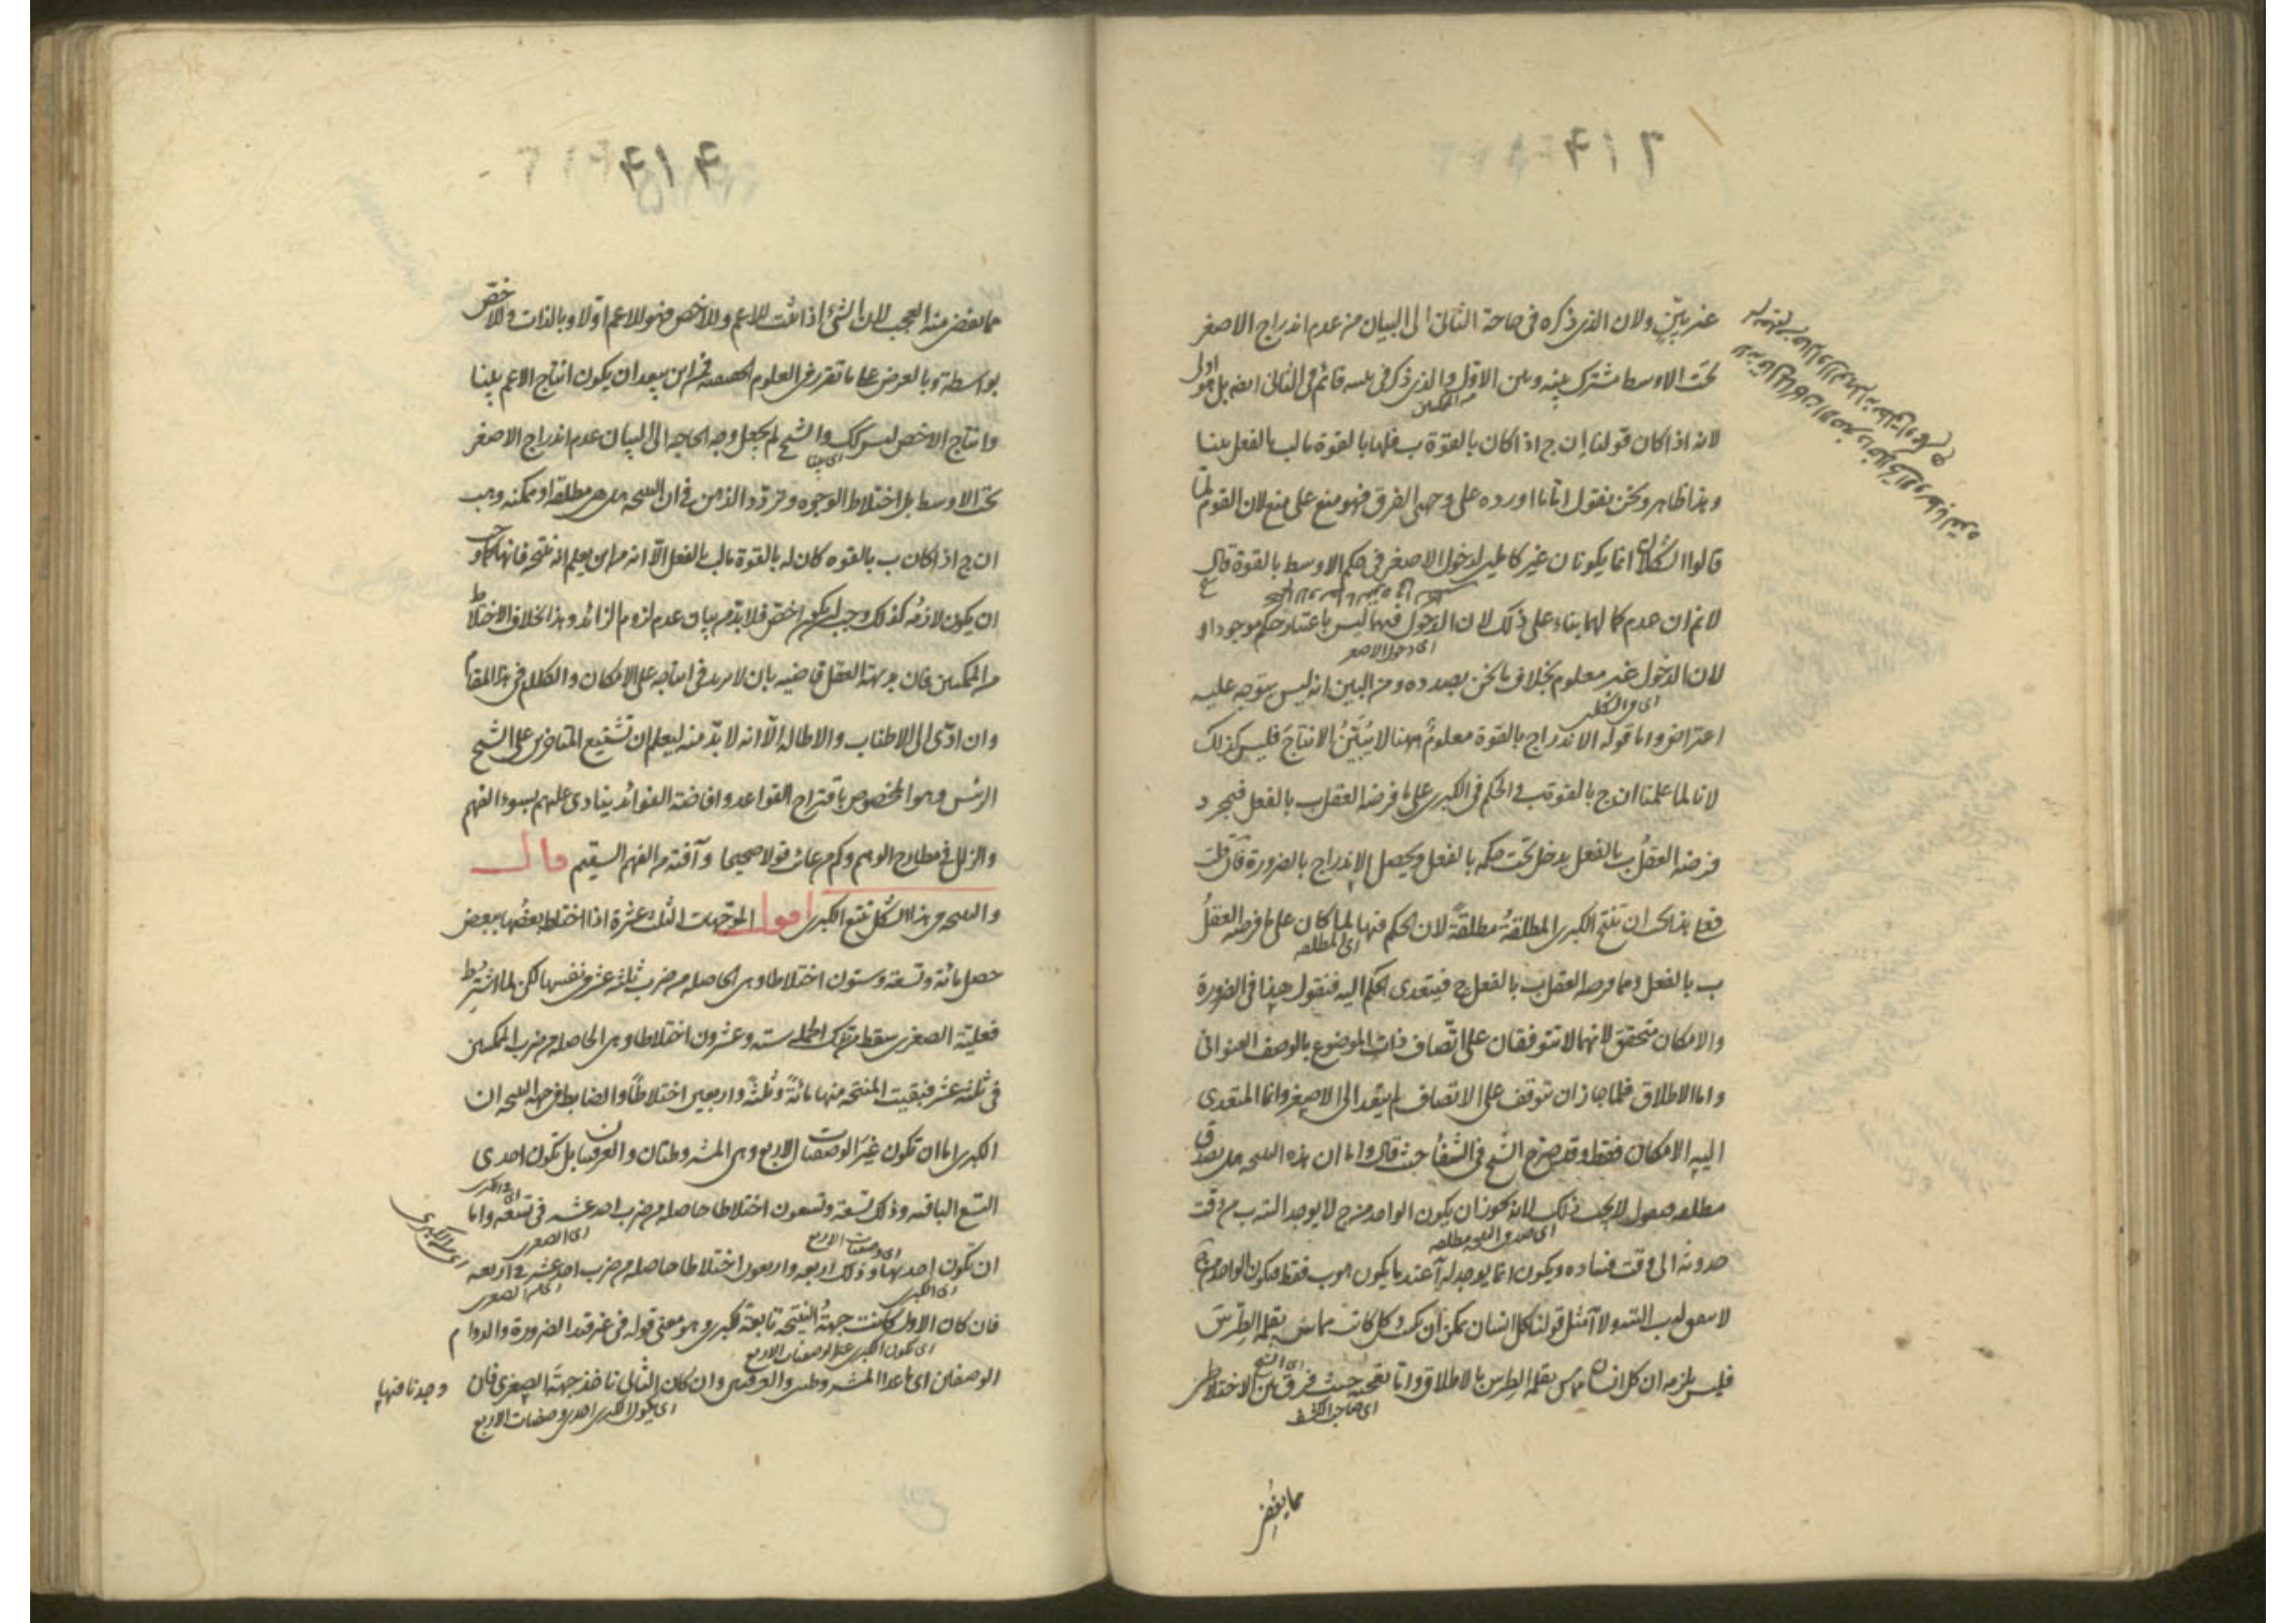 غير بيّن ولان الذي ذكره في حاجة الثاني الى البيان من عدم اندراج الاصغر
تحت الاوسط مشترك بينه وبين الاول والذي ذكره في قائم في الثاني ايضا بل هو اولى
من الممكنتين
لانه اذا كان قولنا ان ج اذا كان بالقوة ب فلها بالقوة ما لب بالفعل بينا
وهذا ظاهر ونحن نقول اما ما اورده على وجهي الفرق فهو منع على منع لان القوم لما
قالوا الشكلان انما يكونان غير كاملين لدخول الاصغر في حكم الاوسط بالقوة قال
لانم ان عدم كما لهما بناء على ذلك لان الدخول فيهما ليس باعتبار حكم موجود او
اى دخول الاصغر
لان الدخول غير معلوم بخلاف ما نحن بصدده ومن البين انه ليس يتوجه عليه
اعتراض واما قوله الاندراج بالقوة معلوم ههنا لا يُبيّن الانتاج فليس كذلك
لانا لما علمنا ان ج بالقوة ب في الحكم في الكبرى على ما فرضه العقل ب بالفعل فبمجرد
فرضه العقل ب بالفعل يدخل تحت حكمه بالفعل ويحصل الاندراج بالضرورة فان قلت
فعلى هذا يجب ان تنتج الكبرى المطلقة مطلقة لان الحكم فيها لما كان على ما فرضه العقل
اى المطلقة
ب بالفعل ومما فرضه العقل ب بالفعل ج فيتعدى الحكم اليه فنقول هذا في الضرورة
والامكان متحقق لانهما لا تتوقفان على اتصاف ذات الموضوع بالوصف العنواني
واما الاطلاق فلما جاز ان تتوقف على الاتصاف لم يتعد الى الاصغر وانما المتعدى
اليه الامكان فقط وقد صرح الشيخ في الشفا حيث قال واما ان هذه النتيجة هل يصدق
مطلقة فنقول لا يجب ذلك لانه يجوز ان يكون الواحد من ج لا يوجد البتة ب من وقت
اى صدق النتيجة مطلقة
حدوثه الى وقت فساده ويكون انما يوجد له آ عند ما يكون هو ب فقط فيكون الواحد من ج
لا يتفق له ب البتة ولا آ مثل قولنا كل انسان يمكن ان يكتب وكل كاتب مماس بقلمه الطرس
اى الشيخ
فليس يلزم ان كل انسان مماس بقلمه الطرس بالاطلاق واما تعجبه حيث فرق بين الاختلاطين
اى صاحب الكشف
مما يقضى
مما يقضى منه العجب لان الشئ اذا ثبت للاعم وللاخص فهو للاعم اولا وبالذات وللاخص
بواسطة وبالعرض على ما تقرر في العلوم الحقيقية فمن اين يبعد ان يكون انتاج الاعم بينا
وانتاج الاخص ليس كك والشيخ لم يجعل وجه الحاجة الى البيان عدم اندراج الاصغر
اى بينا
تحت الاوسط بل اختلاط الوجوه وتردد الذهن في ان النتيجة هل هي مطلقة او ممكنة وهب
ان ج اذا كان ب بالقوة كان له بالقوة ما لب بالفعل الا انه من اين يعلم انه نتيجة فانها كما وجب
ان يكون لازمة كذلك وجب ان يكون اخص فلا بد من بيان عدم لزوم الزائد وهذا بخلاف الاختلاط
من الممكنتين فان بديهة العقل قاضية بان لا مزيد في انتاجه على الامكان والكلام في هذا المقام
وان ادّى الى الاطناب والاطالة الا انه لا بد منه ليعلم ان تشنيع المتأخرين على الشيخ
الرئيس وهو المخصوص باقتراح القواعد وافاضة الفوائد ينادى عليهم بسوء الفهم
والزلل في مطارح الوهم وكم من عائب قولا صحيحا وآفته من الفهم السقيم قال
والنتيجة في هذا الشكل تتبع الكبرى اقول الموجهات الثلث عشرة اذا اختلط بعضها ببعض
حصل مائة وتسعة وستون اختلاطا وهى الحاصلة من ضرب ثلثة عشر في نفسها لكن لما اشترط
فعلية الصغرى سقط من تلك الجملة ستة وعشرون اختلاطا وهى الحاصلة من ضرب الممكنتين
في ثلثة عشر فبقيت المنتجة منها مائة وثلثة واربعين اختلاطا والضابط في جهة النتيجة ان
الكبرى اما ان تكون غير الوصفيات الاربع وهى المشروطتان والعرفيتان بل تكون احدى
التسع الباقية وذلك تسعة وتسعون اختلاطا حاصلة من ضرب احد عشر في تسعة واما
اى الصغرى
اى وصفيات الاربع
ان تكون احديها وذلك اربعة واربعون اختلاطا حاصلة من ضرب احد عشر في اربعة
اى الكبرى
فان كان الاول كانت جهة النتيجة تابعة للكبرى وهو معنى قوله في غير قيد الضرورة والدوام
اى يكون الكبرى غير الوصفيات الاربع
الوصفتين اى ما عدا المشروطتين والعرفيتين وان كان الثانى تاخذ جهة الصغرى فان وجدنا فيها
اى يكون الكبرى احدى وصفيات الاربع